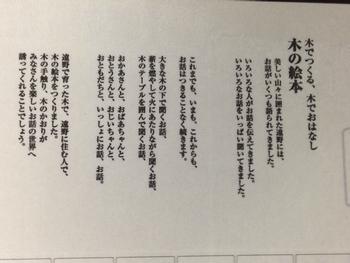 木でつくる、木でおはなし
木の絵本
美しい山々に囲まれた遠野には、
お話がいくつも語られてきました。
いろいろな人がお話を伝えてきました。
いろいろなお話をいっぱい聞いてきました。
これまでも、いまも、これからも、
お話はつきることなく続きます。
大きな木の下で聞くお話、
薪を燃やして火にあたりながら聞くお話、
木のテーブルを囲んで聞くお話、
おかあさんと、おばあちゃんと、
おとうさんと、おじいちゃんと、
おともだちと、いっしょにお話、お話。
遠野で育った木で、遠野に住む人で、
木の絵本をつくりました。
木の手触り、木のかおりが
みなさんを楽しいお話の世界へ
誘ってくれることでしょう。